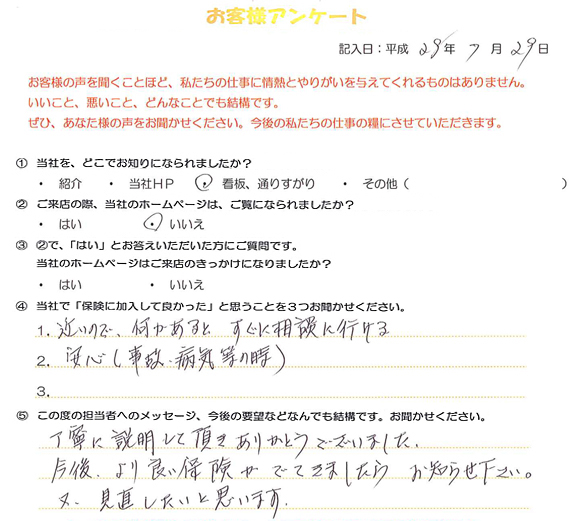 お客様アンケート
記入日：平成 29年 7月 29日
お客様の声を聞くことほど、私たちの仕事に情熱とやりがいを与えてくれるものはありません。
いいこと、悪いこと、どんなことでも結構です。
ぜひ、あなた様の声をお聞かせください。今後の私たちの仕事の糧にさせていただきます。
① 当社を、どこでお知りになられましたか？
・ 紹介 ・ 当社HP ・ 看板、通りすがり ・ その他（ ）
② ご来店の際、当社のホームページは、ご覧になられましたか？
・ はい ・ いいえ
③ ②で、「はい」とお答えいただいた方にご質問です。
当社のホームページはご来店のきっかけになりましたか？
・ はい ・ いいえ
④ 当社で「保険に加入して良かった」と思うことを3つお聞かせください。
1. 近いので、何かあると すぐに相談に行ける
2. 安心（事故、病気等の時）
3.
⑤ この度の担当者へのメッセージ、今後の要望などなんでも結構です。お聞かせください。
丁寧に説明して頂きありがとうございました。
今後、より良い保険がでてきましたら お知らせ下さい。
又、見直したいと思います。